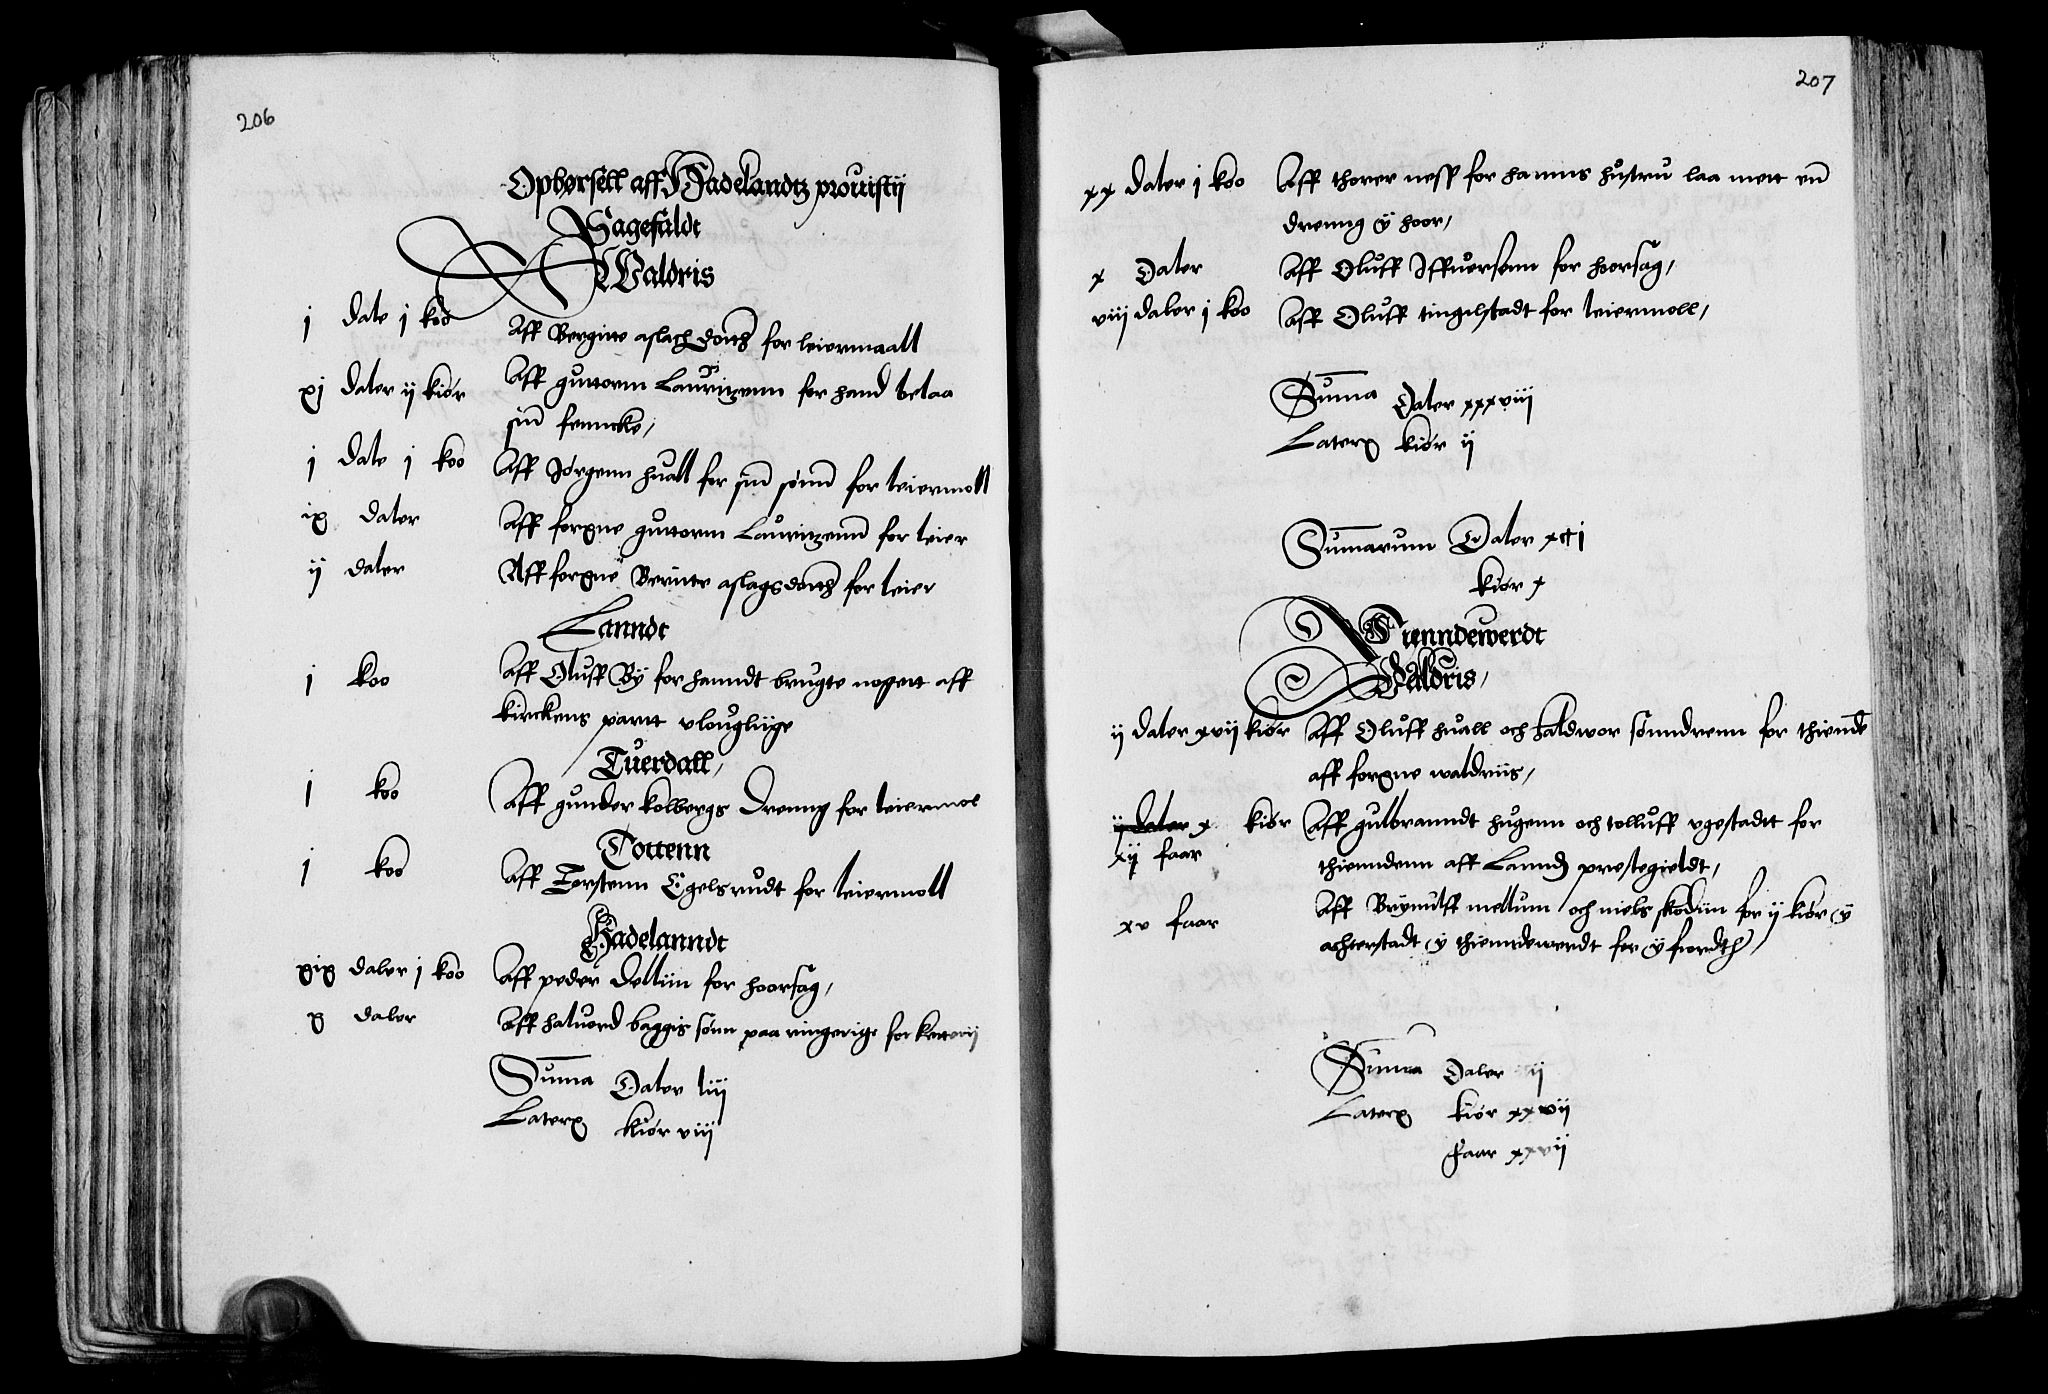 206
Ophørsell aff Hadelandtz prouistij
Sagefaldt
Waldris
j dale j koo Aff Bergite aslach dotth for leiermaall
xj daler ij kiør Aff guttorm Lauritzenn for hand belaa
sin fenncke,
j dale j koo Aff Jørgenn huall for sin sønn for leiermoll
ix daler Aff forgne guttorm Lauritzenn for leier
ij daler Aff forgne Berrite aslagsdotth for leier
Lanndt
j koo Aff Oluff By for hanndt brugte nogett aff
kirckens partt vlougliige
Tuerdall,
j koo Aff gunder kolbergs drenng for leiermol
Tottenn
j koo Aff Torstenn Egelsrudt for leiermoll
Hadelanndt
xix daler j koo Aff peder dellin for hoorsag,
x daler Aff haluord baggis sønn paa ringerige for ketterij
Summa Daler liij
Laterx kiør viij
207
xx daler j koo Aff thorer neff for hanns hustru laa mett en
drenng ij hoor,
x Daler Aff Oluff Iffuersonn for hoorsag,
viij daler j koo Aff Oluff tingelstadt for leiermoll,
Summa Daler xxxviij
Laterx kiør ij
Summarum Daler xcj
kiør x
Tienndewerdt
Valdris,
ij daler xvij kiør Aff Oluff huall och haldwor sønndrenn for thiende
aff forgne waldriis,
ij daler x kiør Aff gulbranndt hugenn och tolluff vgestadtt for
xij faar thienndenn aff Lannds prestegieldt,
xv faar Aff Brynulff mellum och niels skodiin for ij kiør ij
achterstadt ij thienndewerdt for ij fiordth,
Summa Daler ij
Laterx kiør xxvij
Faar xxvij